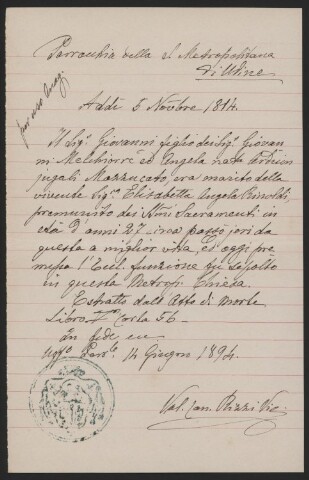 Parrocchia della S. Metropolitana
di Udine
per uso
Addì 5 Novbre 1814.
Il Sigr. Giovanni figlio dei Sigi. Giovan
ni Melchiorre ed Angela nata
jugali Mazzucato, era marito della
vivente Sigra. Elisabetta Angela Rinoldi,
premunito dei Smi Sacramenti in
età d'anni 27 circa passò jeri da
questa a miglior vita, ed oggi pre
messa l'Eccl. funzione fu sepolto
in questa Metrop. Chiesa.
Estratto dall'Atto di morte
Libro Carta 56 -
In fede ecc
Uffo. Parrle. 14 Giugno 1894.
Val. Can. Rizzi Vic.